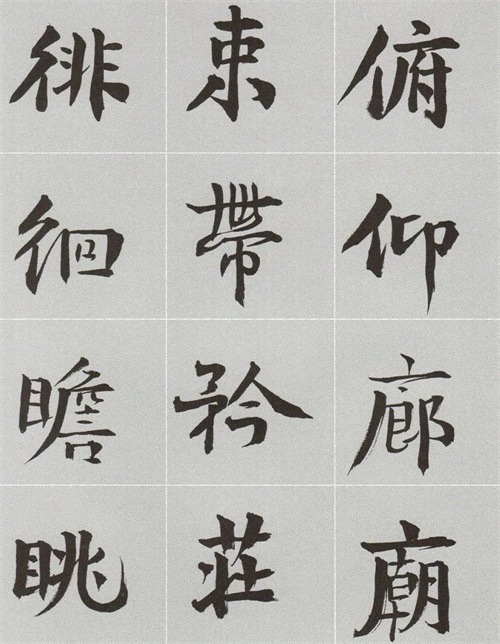 俯仰廊廟
束帶矜莊
徘徊瞻眺